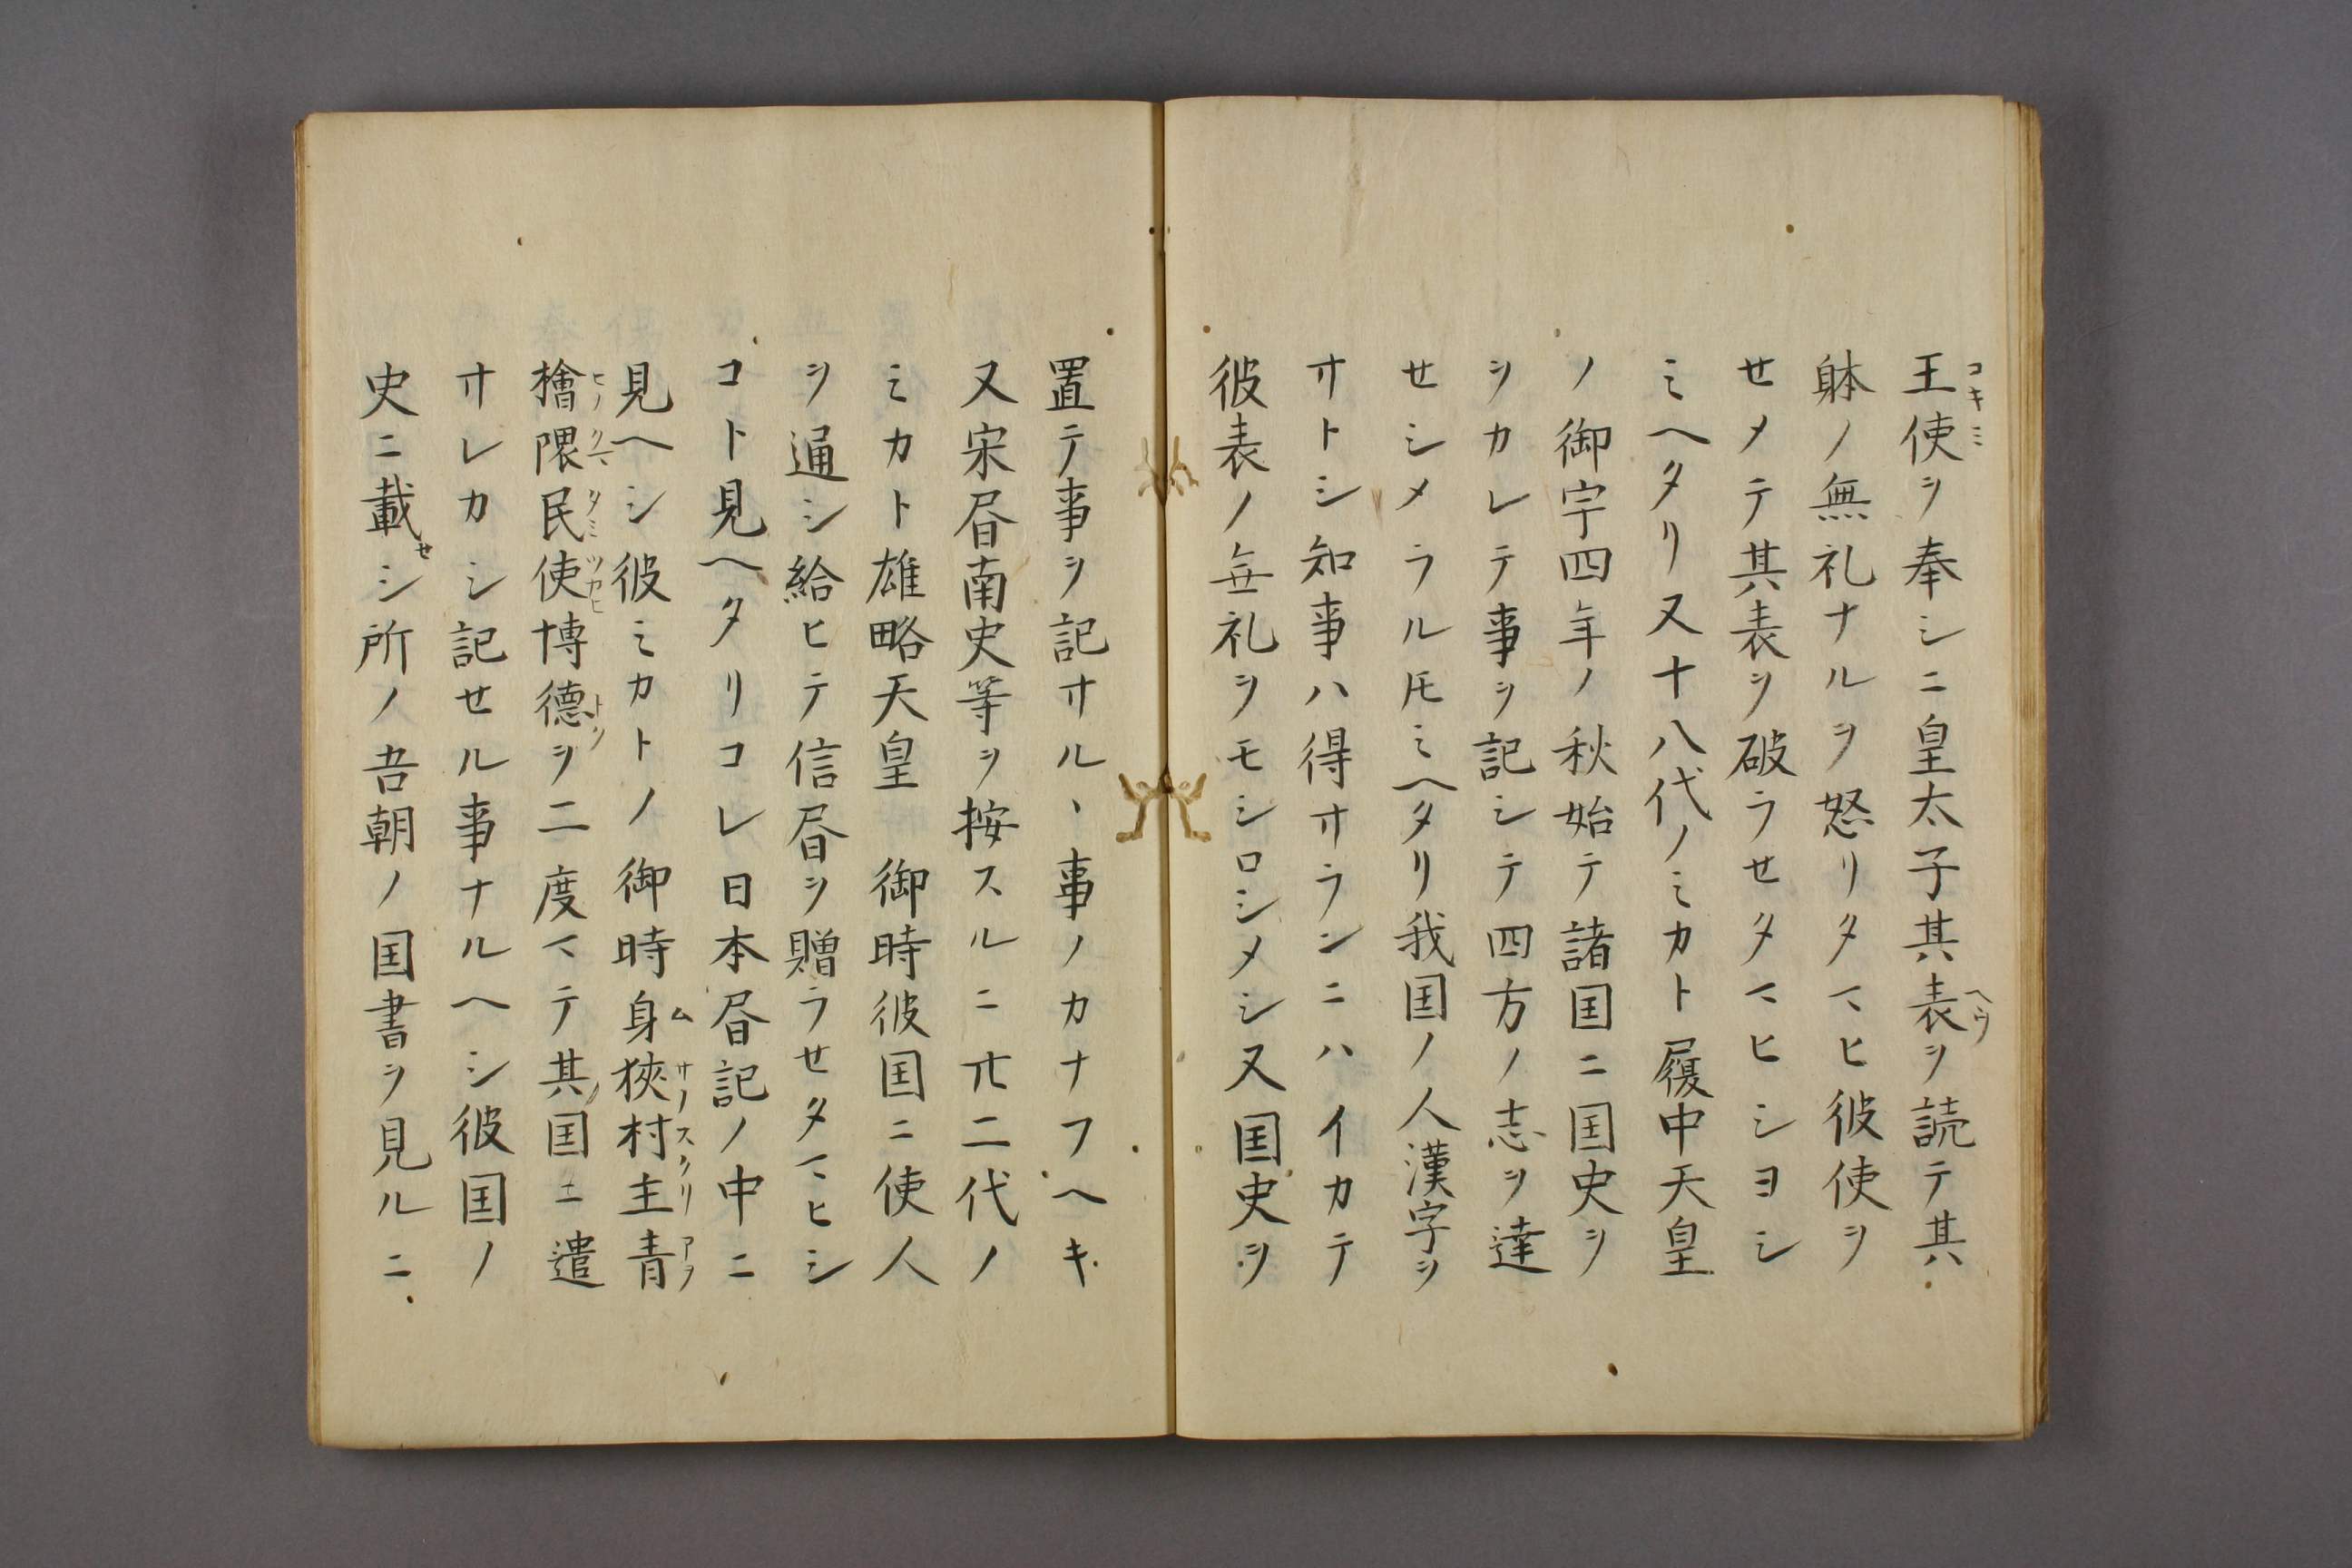 王使ヲ奉シニ皇太子其表ヲ読テ其
躰ノ無礼ナルヲ怒リタマヒ彼使ヲ
せメテ其表ヲ破ラせタマヒシヨシ
ミヘタリ又十八代ノミカト履中天皇
ノ御宇四年ノ秋始テ諸国ニ国史ヲ
シカレテ事ヲ記シテ四方ノ志ヲ達
せシメラル𪜈ミヘタリ我国ノ人漢字ヲ
オトシ知事ハ得オランニハイカテ
彼表ノ無礼ヲモシロシメシ又国史ヲ
置テ事ヲ記オル、事ノカナフヘキ
又宋昼南史等ヲ按スルニ廿二代ノ
ミカト雄略天皇　御時彼国ニ使人
ヲ通シ給ヒテ信昼ヲ贈ラせタマヒシ
コト見ヘタリコレ日本昼記ノ中ニ
見ヘシ彼ミカトノ御時身狹村主青
檜隈民使博徳ヲ二度マテ其国ニ遣
オレカシ記せル事ナルヘシ彼国ノ
史ニ載せシ所ノ吾朝ノ国書ヲ見ルニ